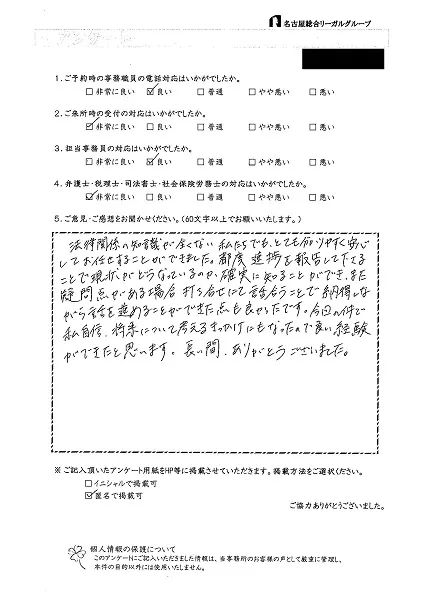 名古屋総合リーガルグループ
1.ご予約時の事務職員の電話対応はいかがでしたか。
□非常に良い ☑良い □普通 □やや悪い □悪い
2.ご来所時の受付の対応はいかがでしたか。
☑非常に良い □良い □普通 □やや悪い □悪い
3.担当事務員の対応はいかがでしたか。
□非常に良い ☑良い □普通 □やや悪い □悪い
4.弁護士・税理士・司法書士・社会保険労務士の対応はいかがでしたか。
☑非常に良い □良い □普通 □やや悪い □悪い
5.ご意見・ご感想をお聞かせください。(60文字以上でお願いいたします。)
法律関係の知識が全くない私たちでも、とても分かりやすく安心
してお任せすることができました。都度進捗を報告して下さる
ことで現状がどうなっているのか、確実に知ることができ、また
疑問点がある場合打ち合せにて話合うことで納得しな
がら話を進めることができた点も良かったです。今回の件で
私自信、将来について考えるきっかけにもなったので良い経験
ができたと思います。長い間、ありがとうございました。
※ご記入頂いたアンケート用紙をHP等に掲載させていただきます。掲載方法をご選択ください。
□イニシャルで掲載可
☑匿名で掲載可
ご協力ありがとうございました。
個人情報の保護について
このアンケートにご記入いただきました情報は、当事務所のお客様の声として厳重に管理し、
本件の目的以外には使用いたしません。